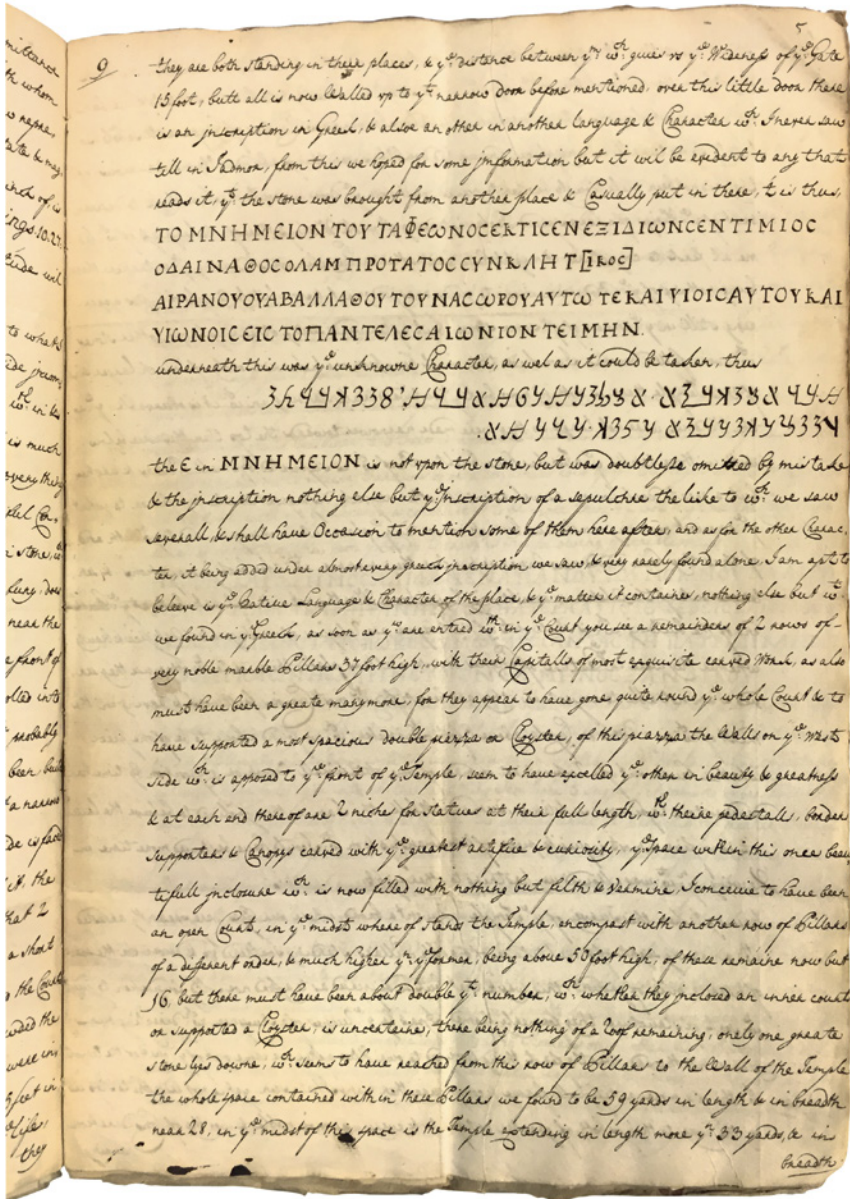 5
9 they are both standing in their places, & yᵉ distance between yᵐ wᶜʰ giues vs yᵉ Wideness of yᵉ Gate
15 foot, butt all is now Walled vp to yᵗ narrow door before mentioned, over this little door there
is an jnscription in Greek, & alsoe an other in another language & Character wᶜʰ I never saw
till in Tadmor, from this we hoped for some jnformation but it wil be evident to any that
reads it, yᵗ the stone was brought from another place & Casually put in there, t is thus,
ΤΟ ΜΝΗΜΕΙΟΝ ΤΟΥ ΤΑΦΕωΝΟCΕΚΤΙCΕΝ ΕΞΙΔΙωΝ CΕΠΤΙΜΙΟC
ΟΔΑΙΝΑΘΟC ΟΛΑΜΠΡΟΤΑΤΟC CΥΝΚΛΗΤ[ΙΚΟC]
ΑΙΡΑΝΟΥ ΟΥΑΒΑΛΛΑΘΟΥ ΤΟΥ ΝΑCCωΡΟΥ ΑΥΤω ΤΕ ΚΑΙ ΥΙΟΙC ΑΥΤΟΥ ΚΑΙ
ΥΙωΝΟΙC ΕΙC ΤΟ ΠΑΝΤΕΛΕC ΑΙωΝΙΟΝ ΤΕΙΜΗΝ.
underneath this was yᵉ unknowne Character, as wel as it could be taken, thus
the Ε in ΜΝΗΜΕΙΟΝ is not vpon the stone, but was doubtlesse omitted by mistake
& the jnscription nothing else but yᵉ Inscription of a sepulchre the like to wᶜʰ we saw
severall, & shall have Occasion to mention some of them here after, and as for the other Charac-
ter, it being added under almost every greek jnscription we saw, & very rarely found alone, I am apt to
beleeve is yᵉ Native Language & Character of the place, & yᵉ matter it containes, nothing else but wᵗ
we found in yᵉ Greek, as soon as yᵘ are entred wᵗʰ in yᵉ Court you see a remainders of 2 rows of-
very noble marble Pillars 37 foot high, with their Capitalls of most exquisite carved Work, as also
must have been a greate many more, for they appear to have gone quite round yᵉ whole Court & to
have supported a most spacious double piazza or Cloyster, of this piazza the Walls on yᵉ West
side wᶜʰ is apposed to yᵉ front of yᵉ Temple, seem to have excelled yᵉ other in beauty & greatness
& at each end thereof are 2 niches for statues at their full length, wᵗʰ theire pedestalls, borders
supporters & Canopys carved with yᵉ greatest artifice & curiosity, yᵉ space within this once beau
tifull jnclosure wᶜʰ is now filled with nothing but filth & Vermine, I conceiue to have been
an open Court, in yᵉ midst where of stands the Temple, encompast with another row of Pillars
of a different order, & much higher yⁿ yᵉ former, being above 50 foot high, of these remaine now but
16, but there must have been about double yᵗ number, wᶜʰ whether they jnclosed an inner court
or supported a Cloyster, is uncertaine, there being nothing of a roof remaining, onely one greate
stone lyes downe, wᶜʰ seems to have reached from this row of Pillars to the Wall of the Temple
the whole space contained with in these Pillars we found to be 59 yards in length & in breadth
near 28, in yᵉ midst of this space is the Temple extending in length more yⁿ 33 yards, & in
breadth